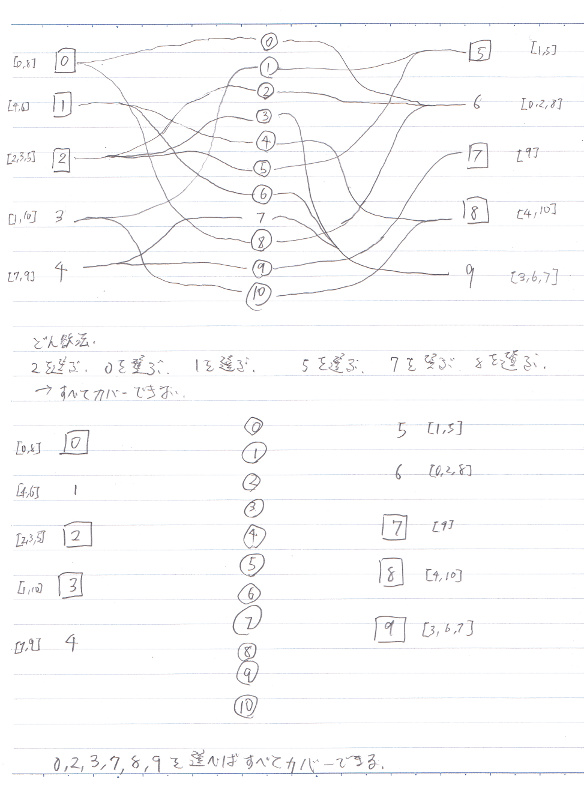 [0,8] 0 0 5 [1,5]
1
[4,6] 1 2 6 [0,2,8]
3
[2,3,5] 2 4 7 [9]
5
6
[1,10] 3 7 8 [4,10]
8
[7,9] 4 9 9 [3,6,7]
10
どん欲法.
2を選ぶ. 0を選ぶ. 1を選ぶ. 5を選ぶ. 7を選ぶ. 8を選ぶ.
→すべてカバーできない.
[0,8] 0 0 5 [1,5]
1
[4,6] 1 2 6 [0,2,8]
3
[2,3,5] 2 4 7 [9]
5
[1,10] 3 6 8 [4,10]
7
[7,9] 4 8 9 [3,6,7]
9
10
0,2,3,7,8,9を選べばすべてカバーできる.